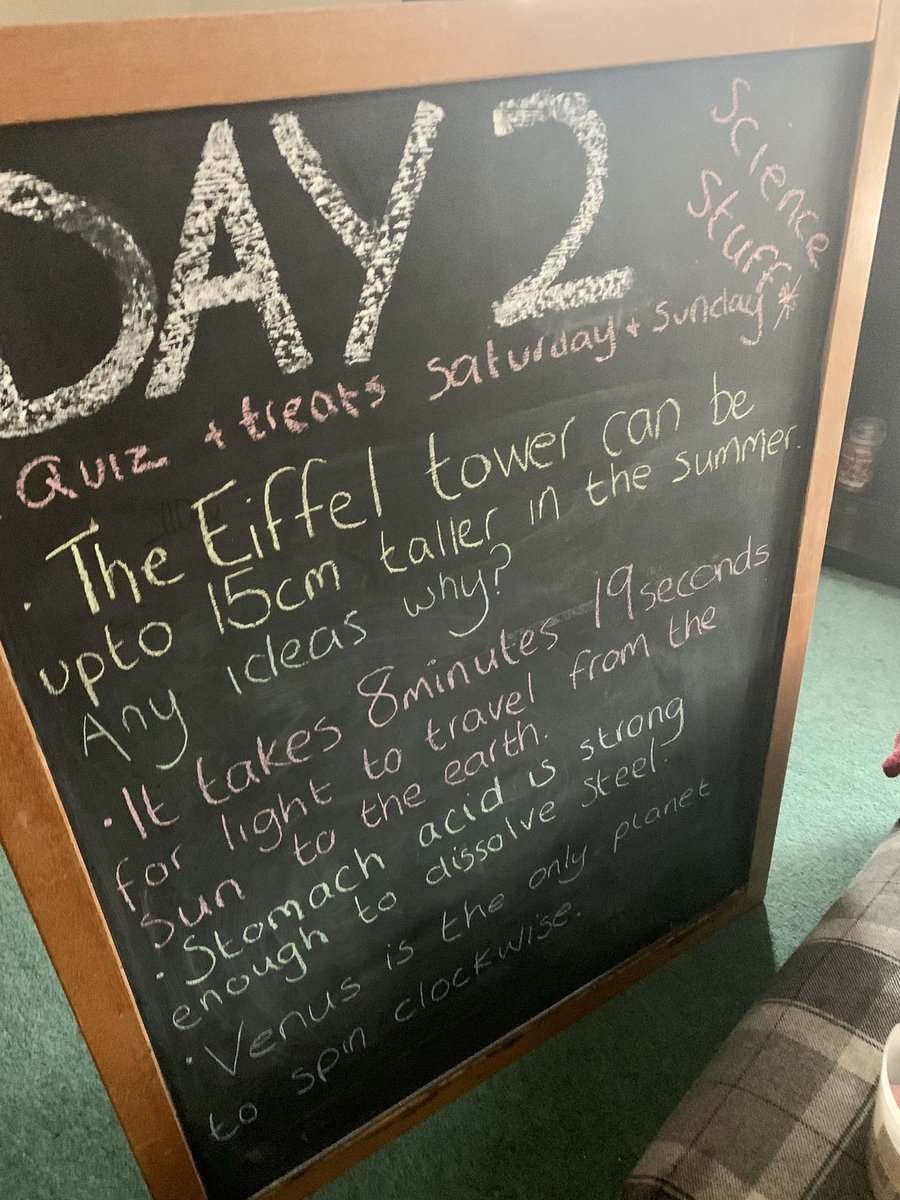 DAY 2
Science
Stuff*
Quiz + treats Saturday + Sunday
. The Eiffel tower can be
upto 15cm taller in the summer.
Any ideas why?
. It takes 8minutes 19seconds
for light to travel from the
Sun to the earth.
. Stomach acid is strong
enough to dissolve steel.
. Venus is the only planet
to spin clockwise.